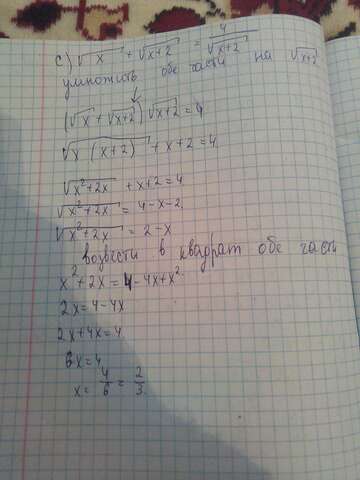 c) √x + √x+2 = 4/√x+2
умножить обе части на √x+2
(√x + √x+2) √x+2 = 4
√x(x+2) + x+2 = 4
√x²+2x + x+2 = 4
√x²+2x = 4-x-2
√x²+2x = 2-x
возвести в квадрат обе части
x²+2x = 4-4x+x²
2x = 4-4x
2x+4x = 4
6x = 4
x = 4/6 = 2/3